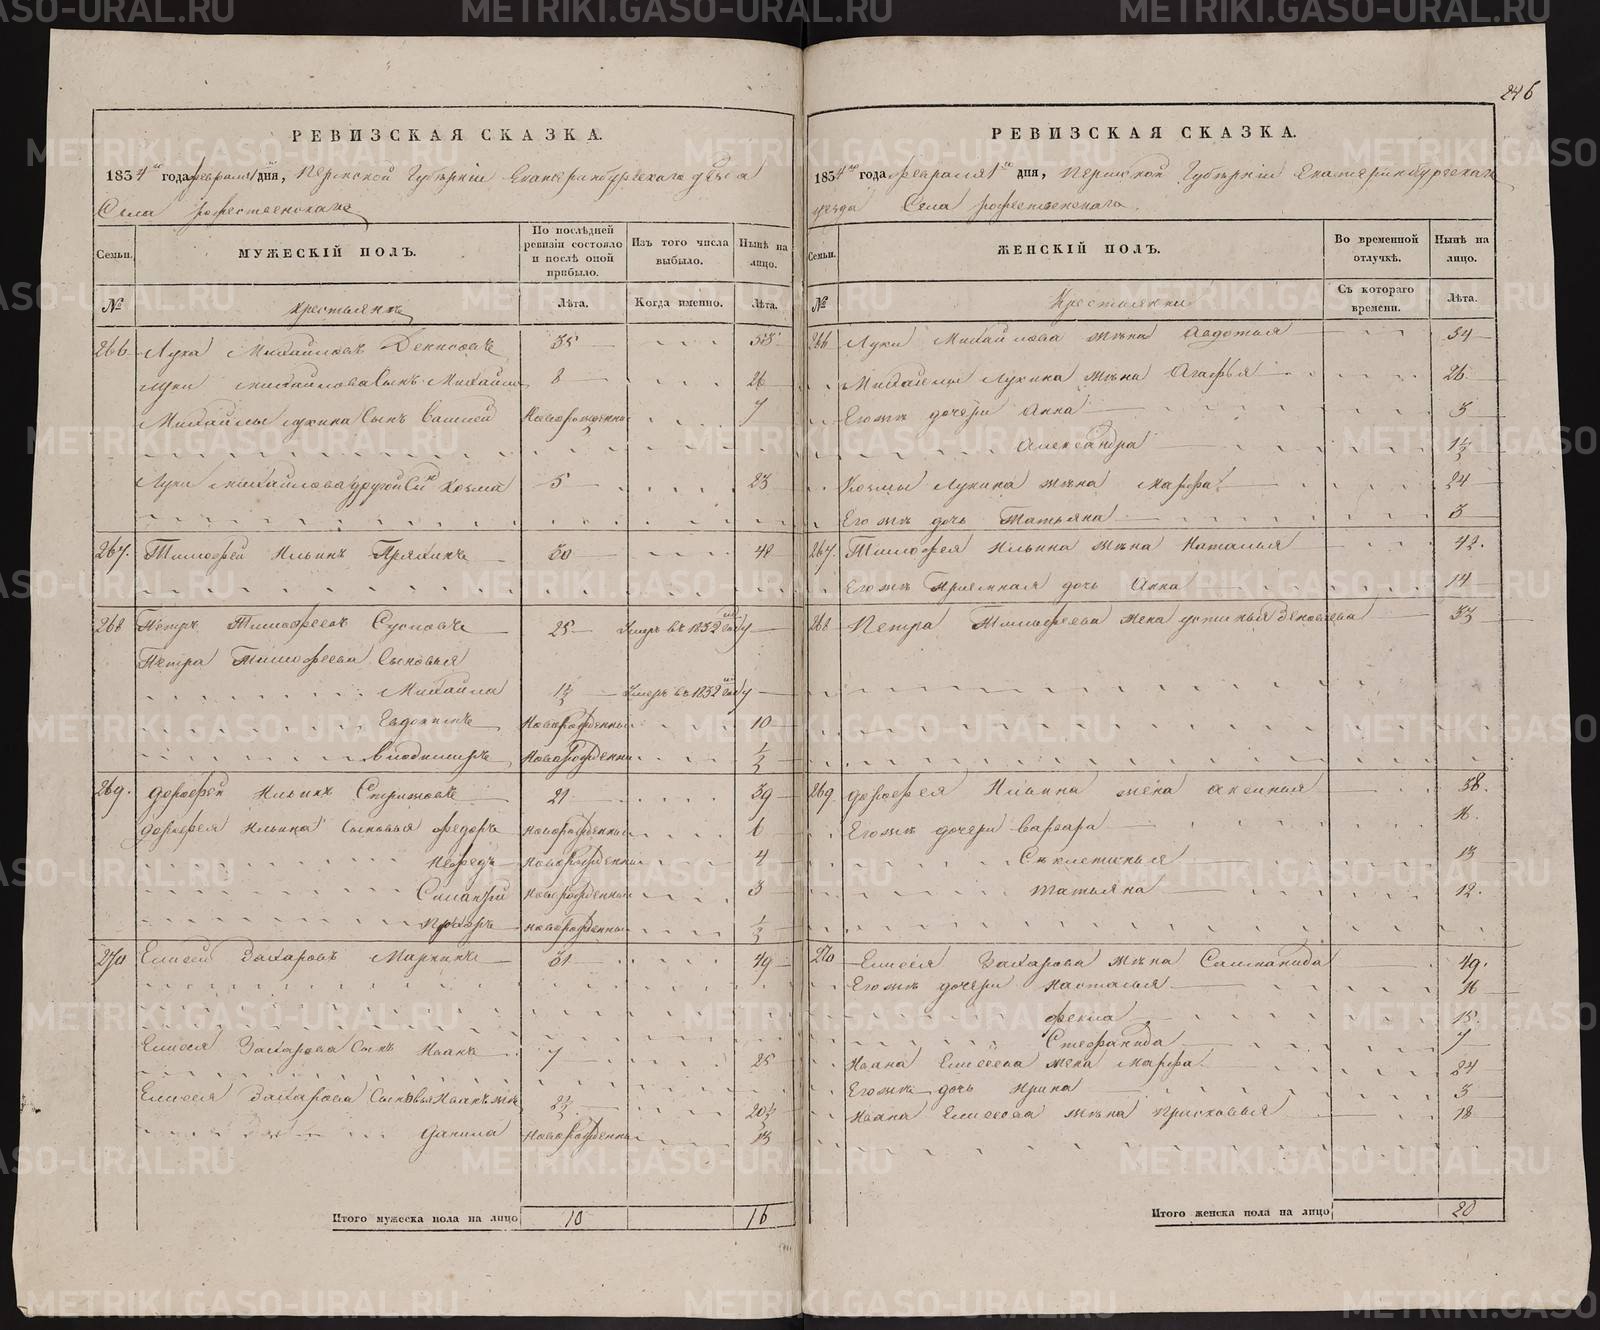 246
РЕВИЗСКАЯ СКАЗКА.
1834го года февраля 1 дня, Пермской Губерніи Екатеринбургскаго уѣзда
Села рождественскаго
Семьи.
МУЖЕСКІЙ ПОЛЪ.
По послѣдней ревизіи состояло и послѣ оной прибыло.
Изъ того числа выбыло.
Нынѣ на лицо.
№
Крестьянъ
Лѣта.
Когда именно.
Лѣта.
266. Лука Михайловъ Денисовъ 35 53
Луки михайлова Сынъ Михайла 8 26
Михайлы лукина Сынъ Василей Новорожденны 7
Луки михайлова другой Сынъ Козма 5 23
267. Тимофей Ильинъ Пряхинъ 30 48
268 Петръ Тимофеевъ Сусловъ 25 Умеръ въ 1832 году
Петра Тимофеева Сыновья
Михайла 1½ Умеръ въ 1832 году
Евдокимъ Новорожденны 10
владимиръ Новорожденны ½
269. дорофей Ильинъ 21 39
дорофея Ильина Сыновья федоръ новорожденны 6
новорожденны 4
новорожденны 3
новорожденны ½
270 Елисей Захаровъ Маркинъ 31 49
Елисея Захарова Сынъ Иванъ 7 25
Елисея Захарова Сыновья Иванъ же 2½ 20½
данила новорожденны 13
Итого мужеска пола на лицо 10 16
РЕВИЗСКАЯ СКАЗКА.
1834го года февраля 1го дня, Пермской Губерніи Екатеринбургскаго
уезда Села рождественскаго
Семьи.
ЖЕНСКІЙ ПОЛЪ.
Во временной отлучкѣ.
Нынѣ на лицо.
№
Крестьянки
Съ котораго времени.
Лѣта.
266 Луки Михайлова жѣна Авдотья 54
Михайлы Лукина жѣна Агафья 26
Его жъ дочери Анна 3
Александра 1½
Козмы Лукина жѣна Марфа 24
Его жъ дочь Татьяна 3
267. Тимофея Ильина жѣна Наталья 42.
Его жъ Приемная дочь Анна 14
268 Петра Тимофеева жена устинья 33
269 дорофея Ильина жена аксинья 38.
Его жъ дочери варвара 16.
Секлетинья 13
татьяна 12.
270 Елисея Захарова жѣна Саломанида 49.
Его жъ дочери настасья 16
фекла 15.
Стефанида 7
Ивана Елисеева жена марфа 24
Его жъ дочь ирина 3
Ивана Елисеева жѣна прасковья 18
Итого женска пола на лицо 20
METRIKI.GASO-URAL.RU